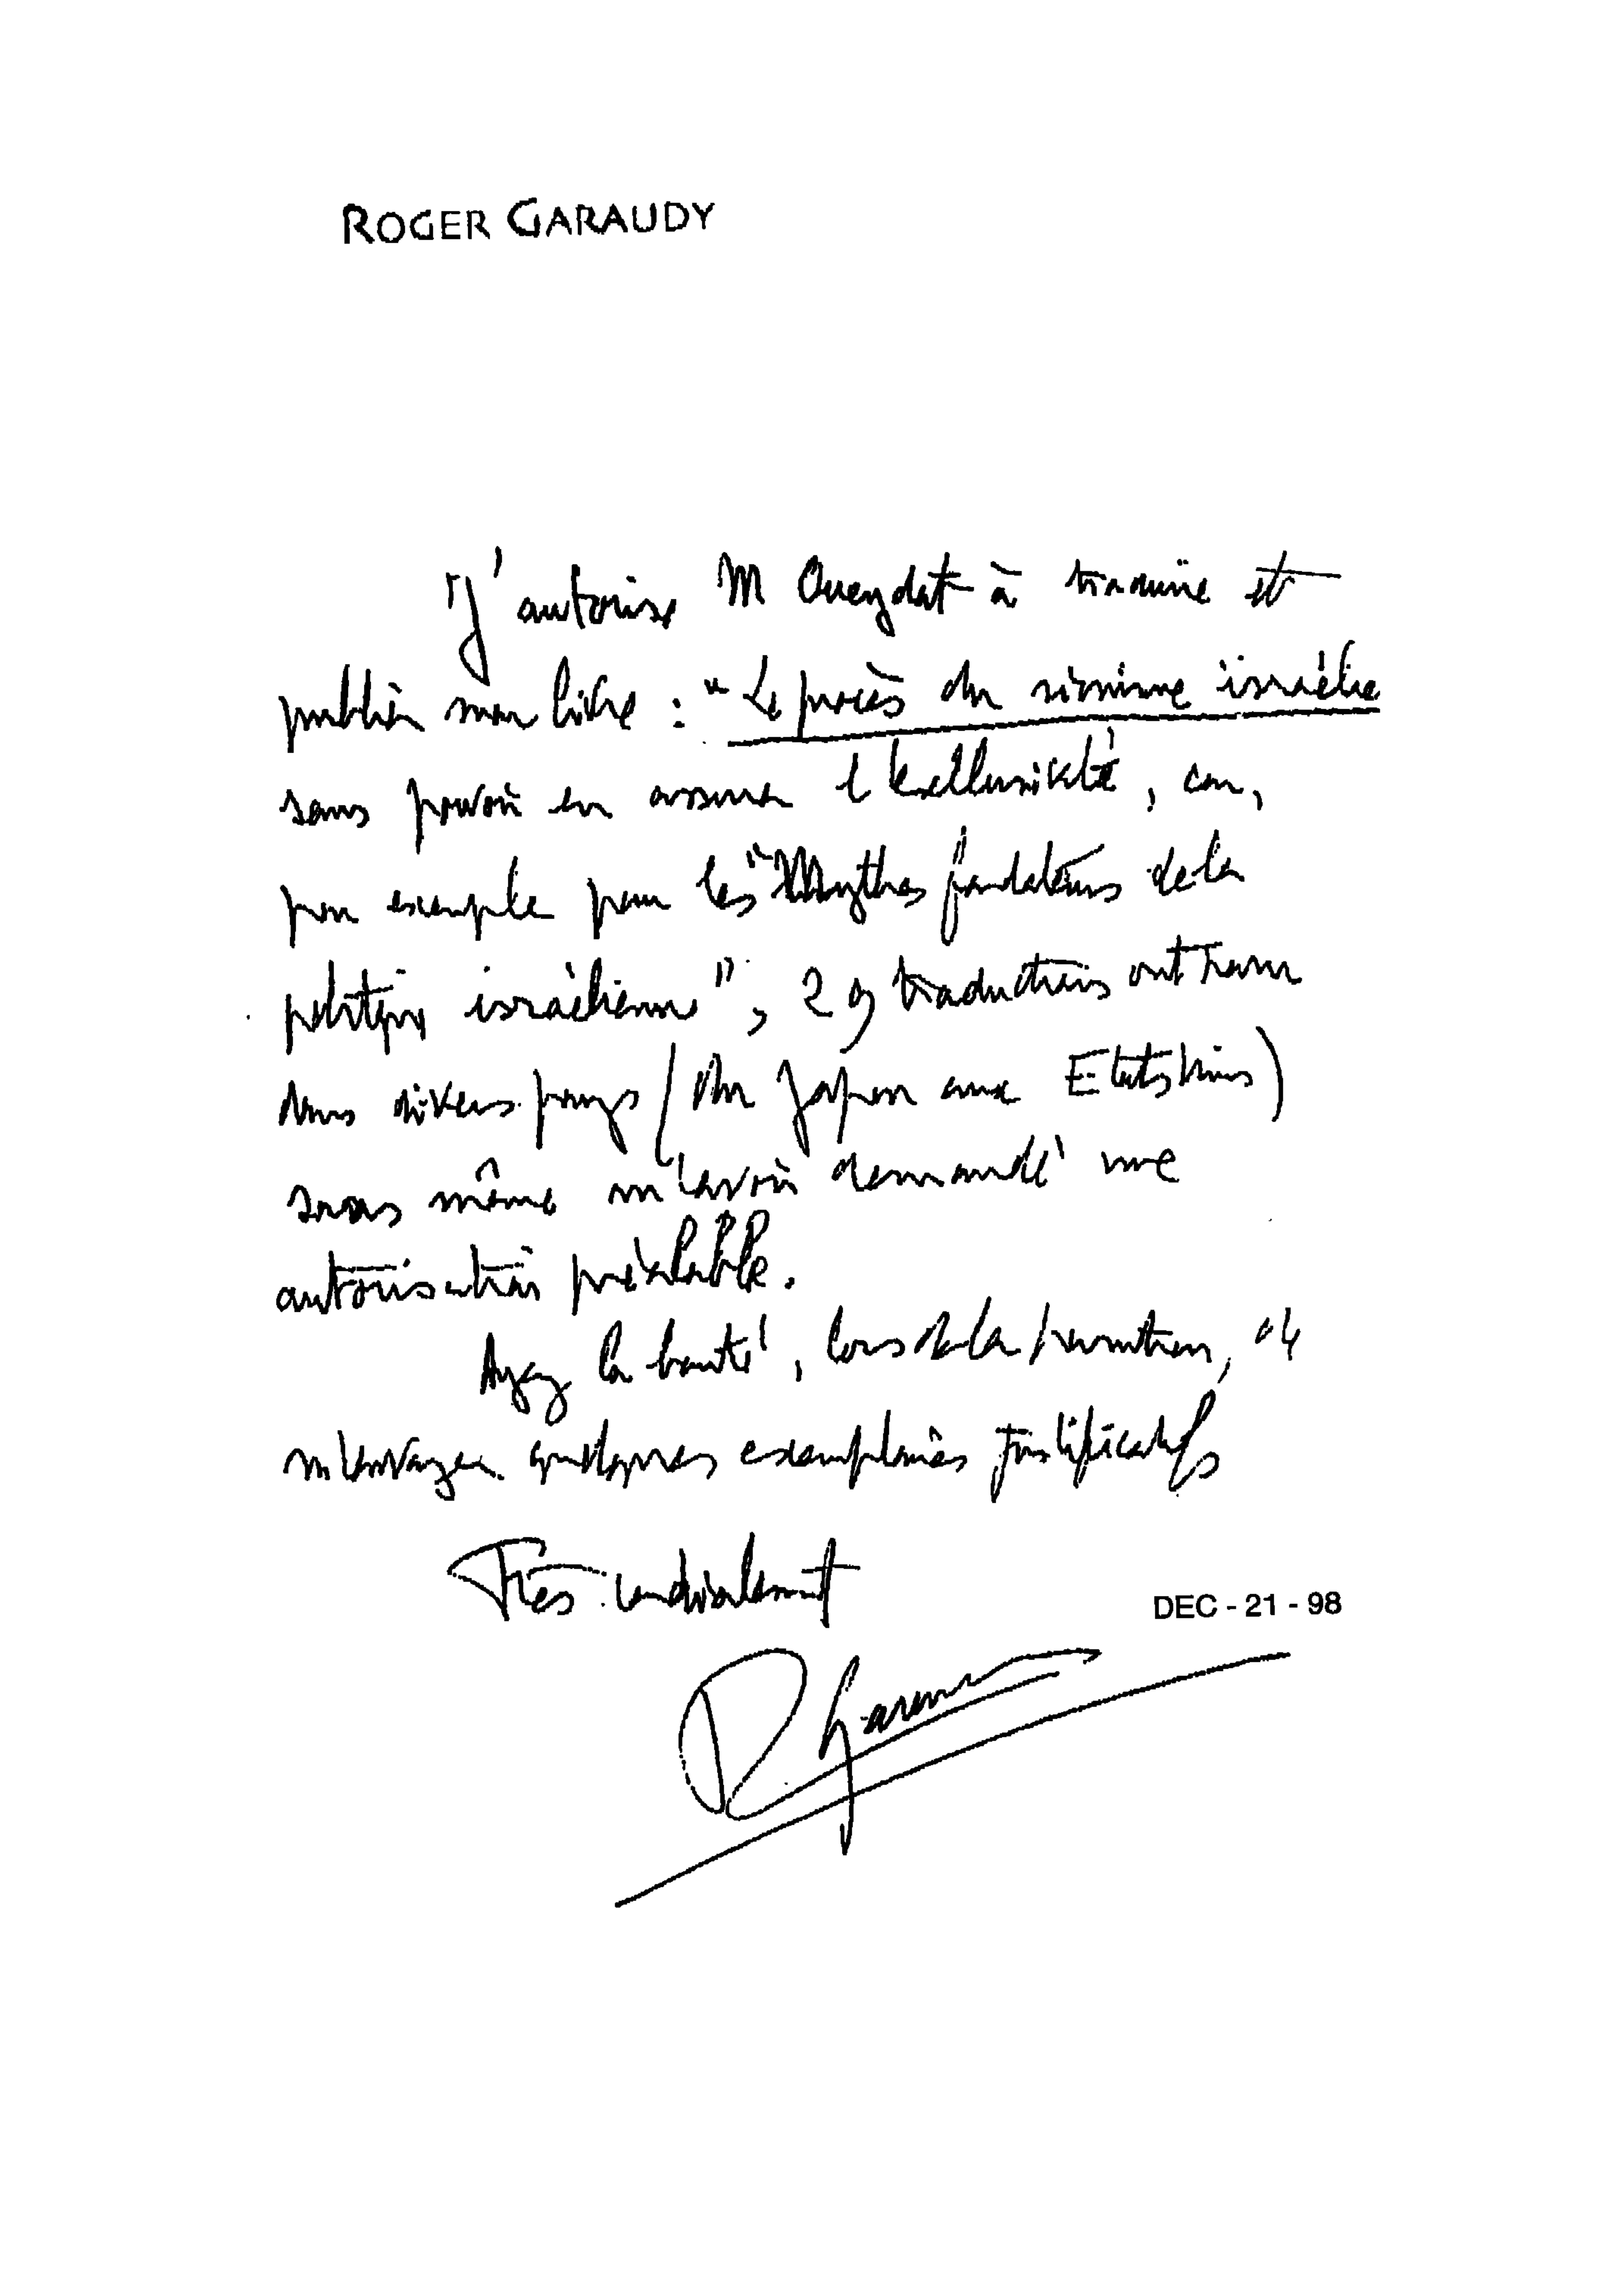 ROGER GARAUDY
J'autorise M Oueydat à traduire et
publier mon livre : "Le procès du sionisme israélie
sans pouvoir en assurer l'exclusivité, car,
par exemple pour les "Mythes fondateurs de la
politique israélienne", 29 traductions ont paru
dans divers pays (du Japon aux Etats Unis)
sans même m'avoir demandé une
autorisation préalable.
Ayez la bonté, lors de la parution, de
m'envoyer quelques exemplaires justificatifs
Très cordialement
DEC - 21 - 98
R Garaudy